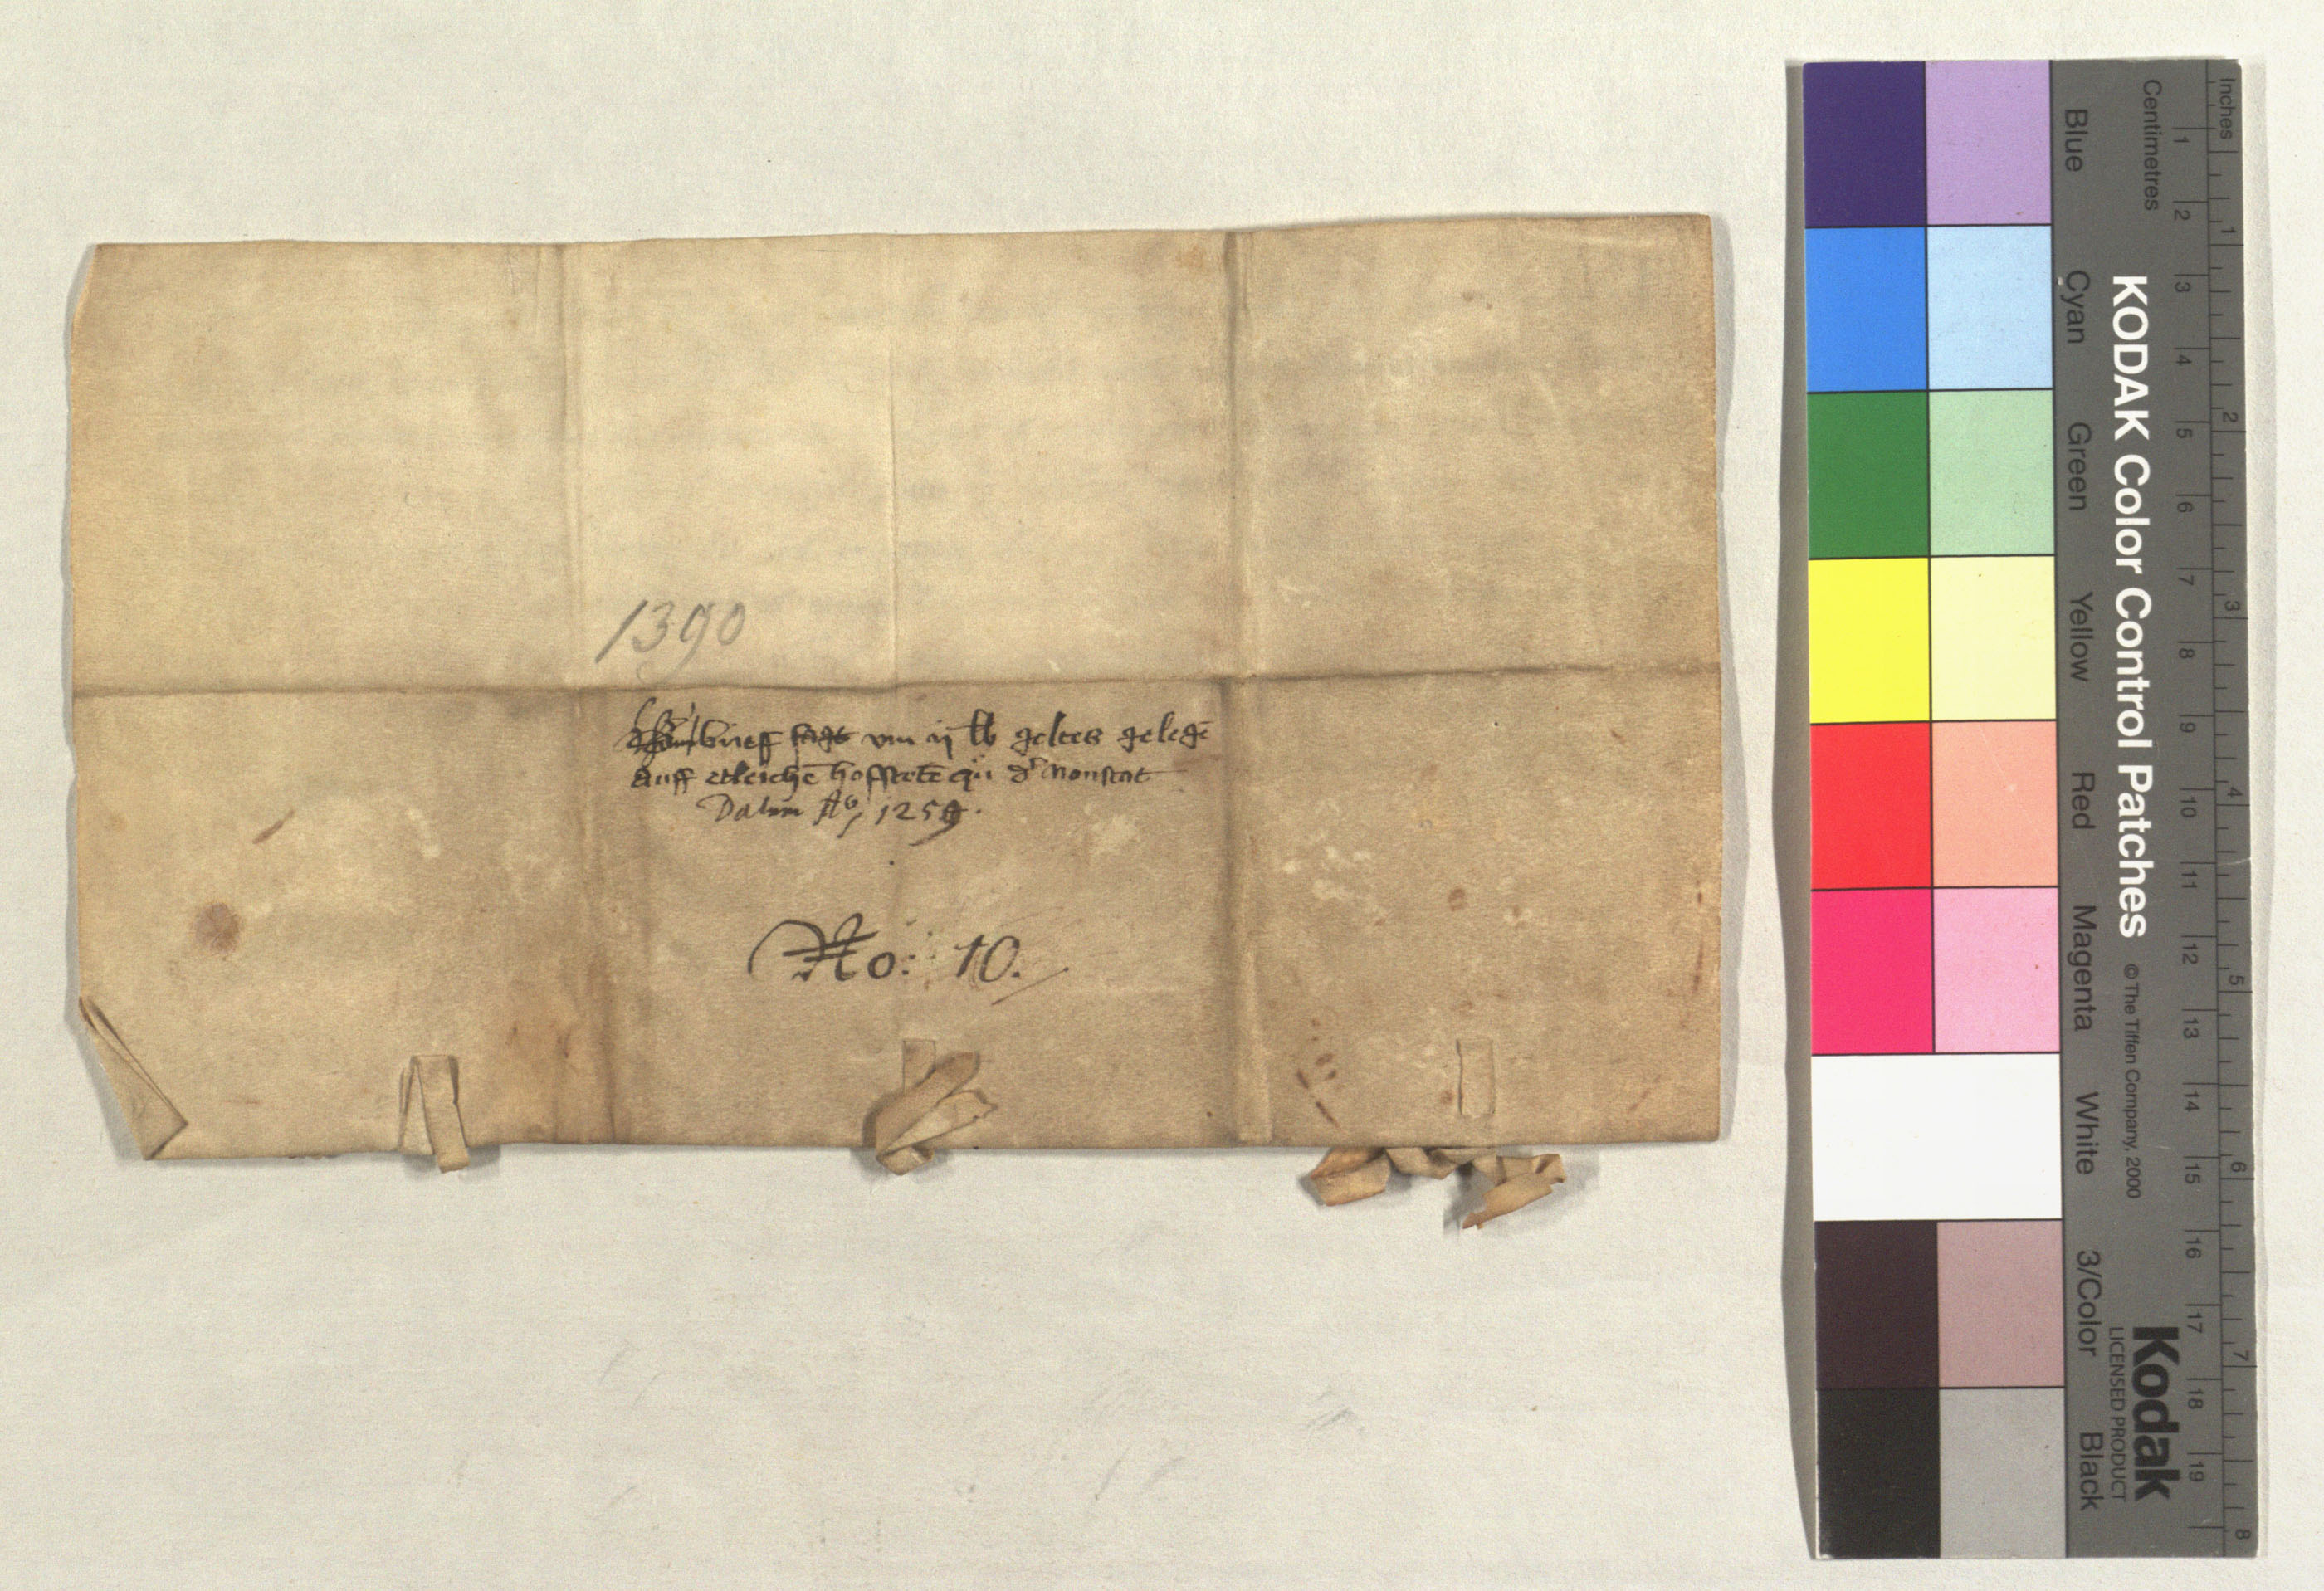 1390
brieff sagt vm ij lb geltes gelegē
auff etleichē hofstetē in d' Nonstat
Datum Aº, 1259.
No: 10.
Inches
Centimetres
1 2 3 4 5 6 7 8
1 2 3 4 5 6 7 8 9 10 11 12 13 14 15 16 17 18 19
KODAK Color Control Patches © The Tiffen Company, 2000
Kodak
LICENSED PRODUCT
Blue Cyan Green Yellow Red Magenta White 3/Color Black